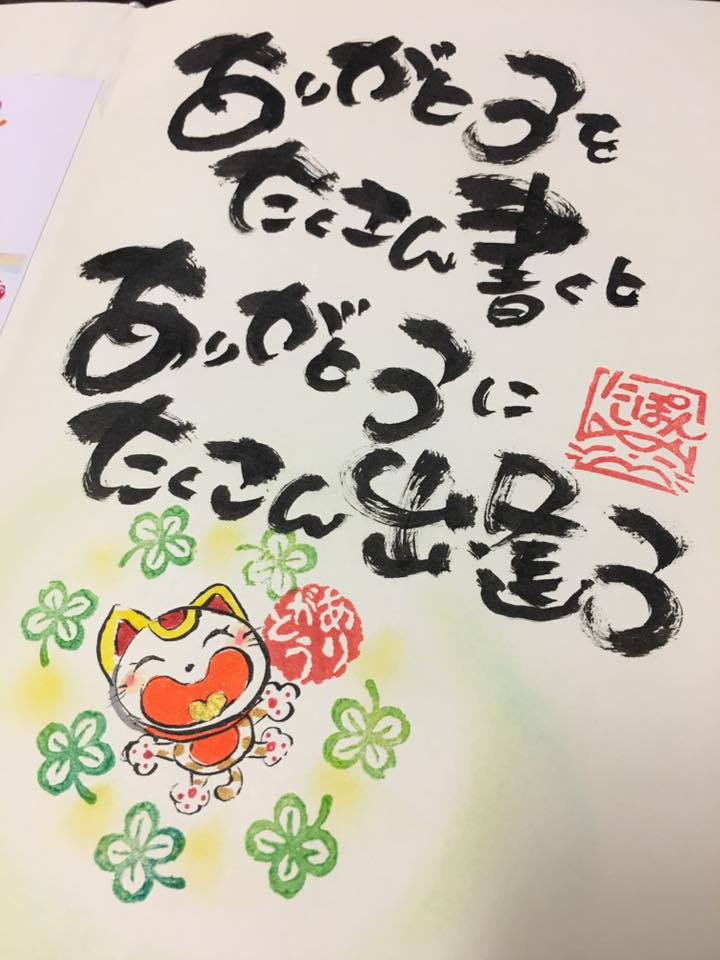 ありがとうを
たくさん書くと
ありがとうに
たくさん出逢う
にぽん
ありがとう